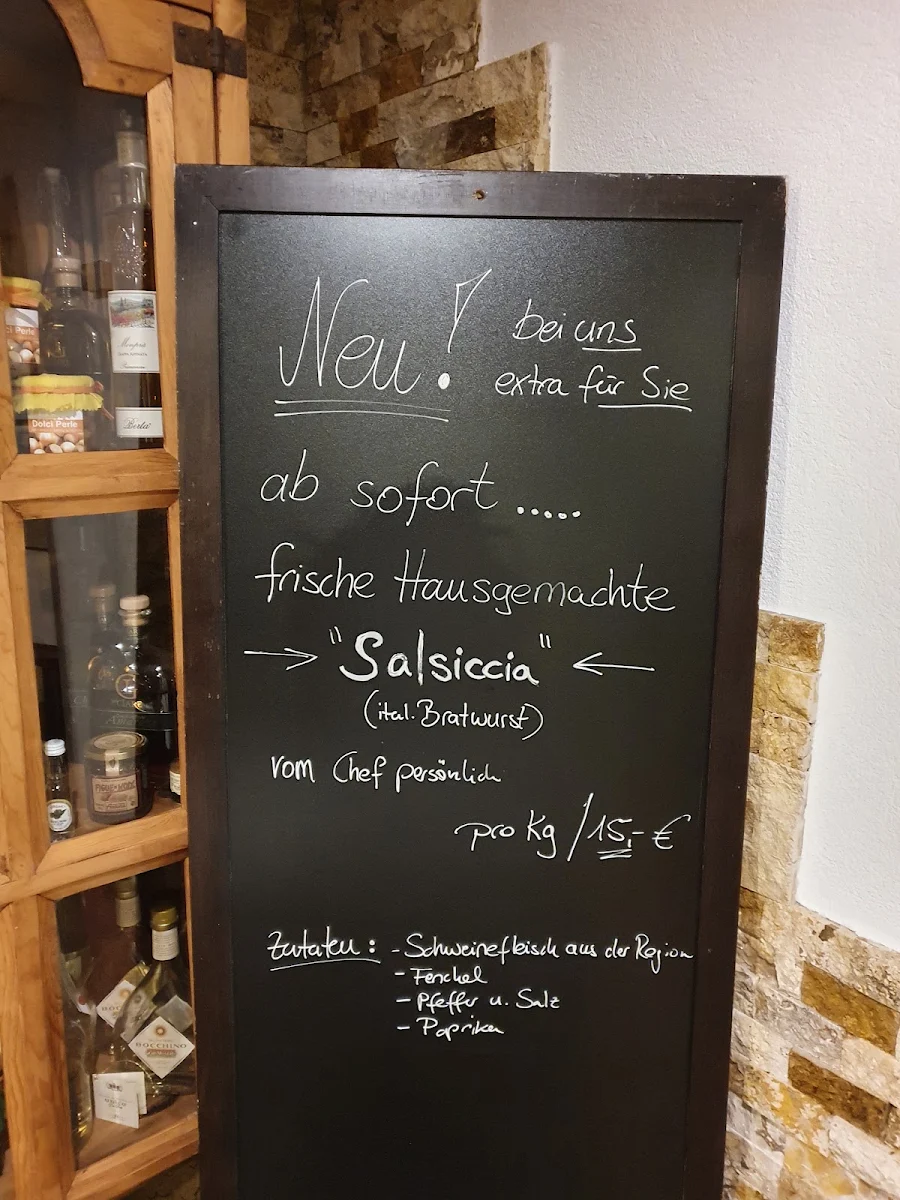 Neu! bei uns
extra für Sie
ab sofort .....
frische Hausgemachte
→ "Salsiccia" ←
(ital. Bratwurst)
vom Chef persönlich
pro Kg / 15,- €
Zutaten: - Schweinefleisch aus der Region
- Fenchel
- Pfeffer u. Salz
- Paprika
ci Perle
Dolci Perle
Berta
BOCCHINO